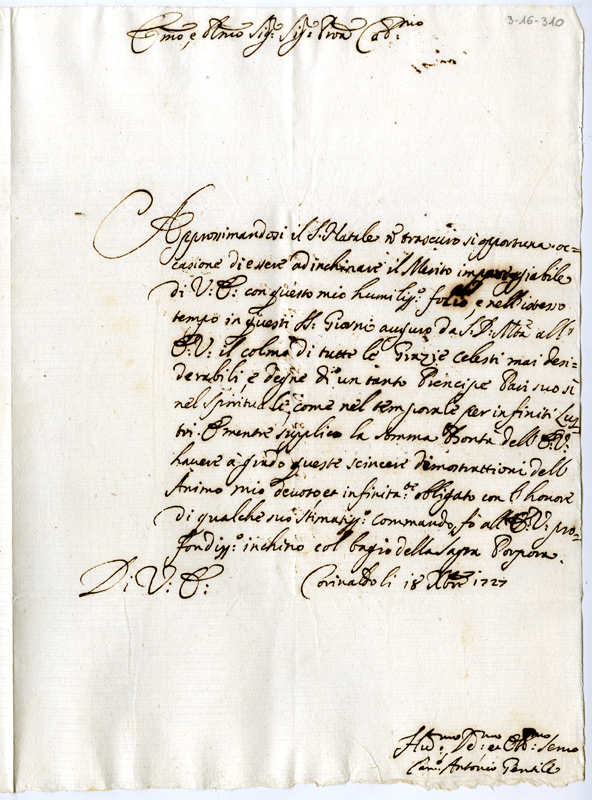 3-16-310
Emo, e Rmo Sig: Sig: Pron Col:mo
Approssimandosi il S. Natale nō trascuro si opportuna oc=
casione di essere ad inchinare il Merito impareggiabile
di V: E: con questo mio humiliss:o folio, e nell'istesso
tempo in questi SS: Giorni auguro da S. D: Mta all'
E: V: il colmo di tutte le Grazie Celesti mai desi=
derabili, e degne di un tanto Prencipe Pari suo si
nel spirituale, come nel temporale per infiniti Lus
tri. E mentre supplico la somma Bontà dell' E: V:
havere à grado queste scincere dimostrattioni dell
Animo mio devoto, et infinita:te obligato con l'honore
di qualche suo stimatiss:o commando, fò all' E: V: pro=
fondiss:o inchino col bagio della Sagra Porpora.
Di V: E: Corinaldoli 18 Xbre 1727
Hu:mo De:mo et Ob:mo Servo
Can:co Antonio Gentile